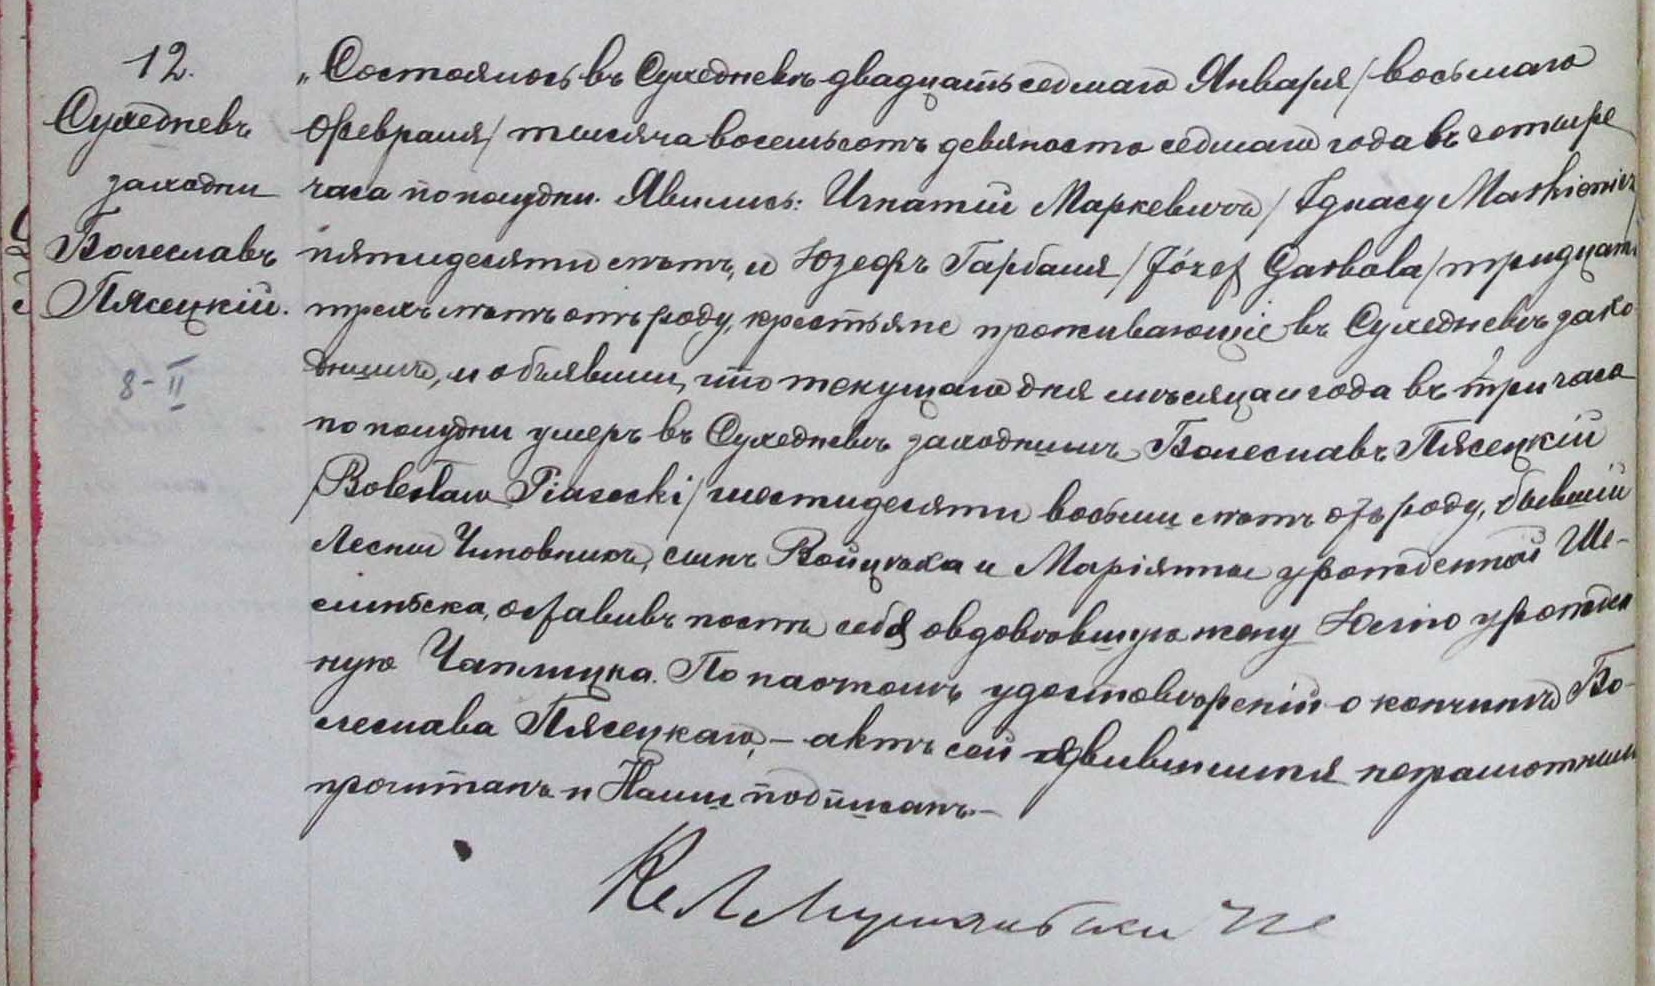 12.
Сухедневъ
заходни
Болеславъ
Пясецкій.
8-II
„Состоялось въ Сухедневѣ двадцать седмаго Января/восьмаго
Февраля/ тысяча восемьсотъ девяносто седмаго года въ четыре
часа по полудни. Явились: Игнатій Маркевичъ /Ignacy Markiewicz/
пятидесяти лѣтъ, и Юзефъ Гарбаля /Józef Garbala/ тридцати
трехъ лѣтъ отъ роду, крестьяне проживающіе въ Сухедневѣ захо-
днимъ, и объявили, что текущаго дня мѣсяца и года въ три часа
по полудни умеръ въ Сухедневѣ заходнимъ Болеславъ Пясецкій
/Bolesław Piasecki/ шестидесяти восьми лѣтъ отъ роду, бывшій
Лесный Чиновникъ, сынъ Войцѣха и Маріянны урожденной Ше-
линьска, оставивъ послѣ себя овдовѣвшую жену Юлію урожден
ную Чаплицка. По наочномъ удостовѣреніи о кончинѣ Бо-
леслава Пясецкаго, – актъ сей явившимся неграмотнымъ
прочитанъ и Нами подписанъ.–